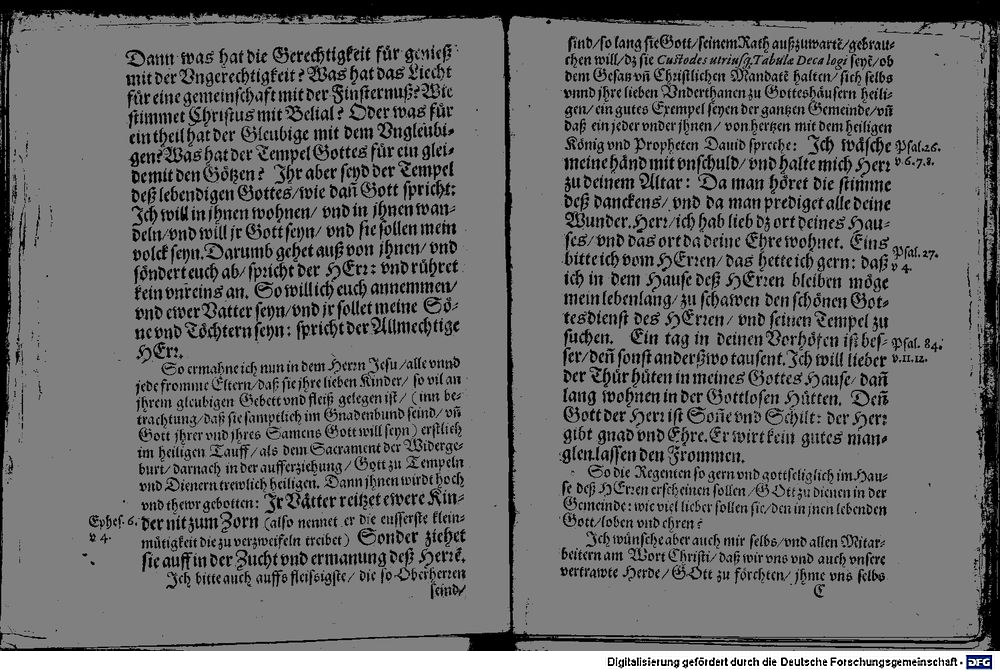 Dann was hat die Gerechtigkeit für genieß
mit der Vngerechtigkeit? Was hat das Liecht
für eine gemeinschaft mit der Finsternuß? Wie
stimmet Christus mit Belial? Oder was für
ein theil hat der Gleubige mit dem Vngleubi-
gen? Was hat der Tempel Gottes für ein glei-
che mit den Götzen? Ihr aber seyd der Tempel
deß lebendigen Gottes/ wie dañ Gott spricht:
Ich will in jhnen wohnen/ vnd in jhnen wan-
deln/ vnd will jr Gott seyn/ vnd sie sollen mein
volck seyn. Darumb gehet auß von jhnen/ vnd
söndert euch ab/ spricht der HErr: vnd rühret
kein vnreins an. So will ich euch annemmen/
vnd ewer Vatter seyn/ vnd jr sollet meine Sö-
ne vnd Töchtern seyn: spricht der Allmechtige
HErr.
So ermahne ich nun in dem Herrn Jesu/ alle vnnd
jede fromme Eltern/ daß sie jhre lieben Kinder/ so vil an
jhrem gleubigen Gebett vnd fleiß gelegen ist/ (inn be-
trachtung/ daß sie samptlich im Gnadenbund seind/ vñ
Gott jhrer vnd jhres Samens Gott will seyn) erstlich
im heiligen Tauff/ als dem Sacrament der Widerge-
burt/ darnach in der aufferziehung/ Gott zu Tempeln
vnd Dienern trewlich heiligen. Dann jhnen wirdt hoch
vnd thewr gebotten: Ir Vätter reitzet ewere Kin-
Ephes. 6. v 4.
der nit zum Zorn (also nennet er die eusserste klein-
mütigkeit die zu verzweifeln treibet) Sonder ziehet
sie auff in der Zucht vnd ermanung deß Herrē.
Ich bitte auch auffs fleissigste/ die so Oberherren
seind/
sind/ so lang sie Gott/ seinem Rath außzuwartē/ gebrau-
chen will/ dz sie Custodes utriusq; Tabulæ Decalogi seyē/ ob
dem Gesatz vñ Christlichen Mandatē halten/ sich selbs
vnnd jhre lieben Vnderthanen zu Gotteshäusern heili-
gen/ ein gutes Exempel seyen der gantzen Gemeinde/ vñ
daß ein jeder vnder jhnen/ von hertzen mit dem heiligen
König vnd Propheten Dauid spreche: Ich wäsche
Psal. 26. v 6. 7. 8.
meine händ mit vnschuld/ vnd halte mich Herr
zu deinem Altar: Da man höret die stimme
deß danckens/ vnd da man prediget alle deine
Wunder. Herr/ ich hab lieb dz ort deines Hau-
ses/ vnd das ort da deine Ehre wohnet. Eins
bitte ich vom HErren/ das hette ich gern: daß
Psal. 27. v 4.
ich in dem Hause deß HErren bleiben möge
mein lebenlang/ zu schawen den schönen Got-
tesdienst des HErren/ vnd seinen Tempel zu
suchen. Ein tag in deinen Vorhöfen ist bes-
Psal. 84. v. 11. 12.
ser/ deñ sonst anderßwo tausent. Ich will lieber
der Thür hüten in meines Gottes Hause/ dañ
lang wohnen in der Gottlosen Hütten. Deñ
Gott der Herr ist Soñe vnd Schilt: der Herr
gibt gnad vnd Ehre. Er wirt kein gutes man-
glen lassen den Frommen.
So die Regenten so gern vnd gottseliglich im Hau-
se deß HErren erscheinen sollen/ GOtt zu dienen in der
Gemeinde: wie viel lieber sollen sie/ den in jnen lebenden
Gott/ loben vnd ehren?
Ich wünsche aber auch mir selbs/ vnd allen Mitar-
beitern am Wort Christi/ daß wir vns vnd auch vnsere
vertrawte Herde/ GOtt zu förchten/ jhme vns selbs
C
Digitalisierung gefördert durch die Deutsche Forschungsgemeinschaft - DFG